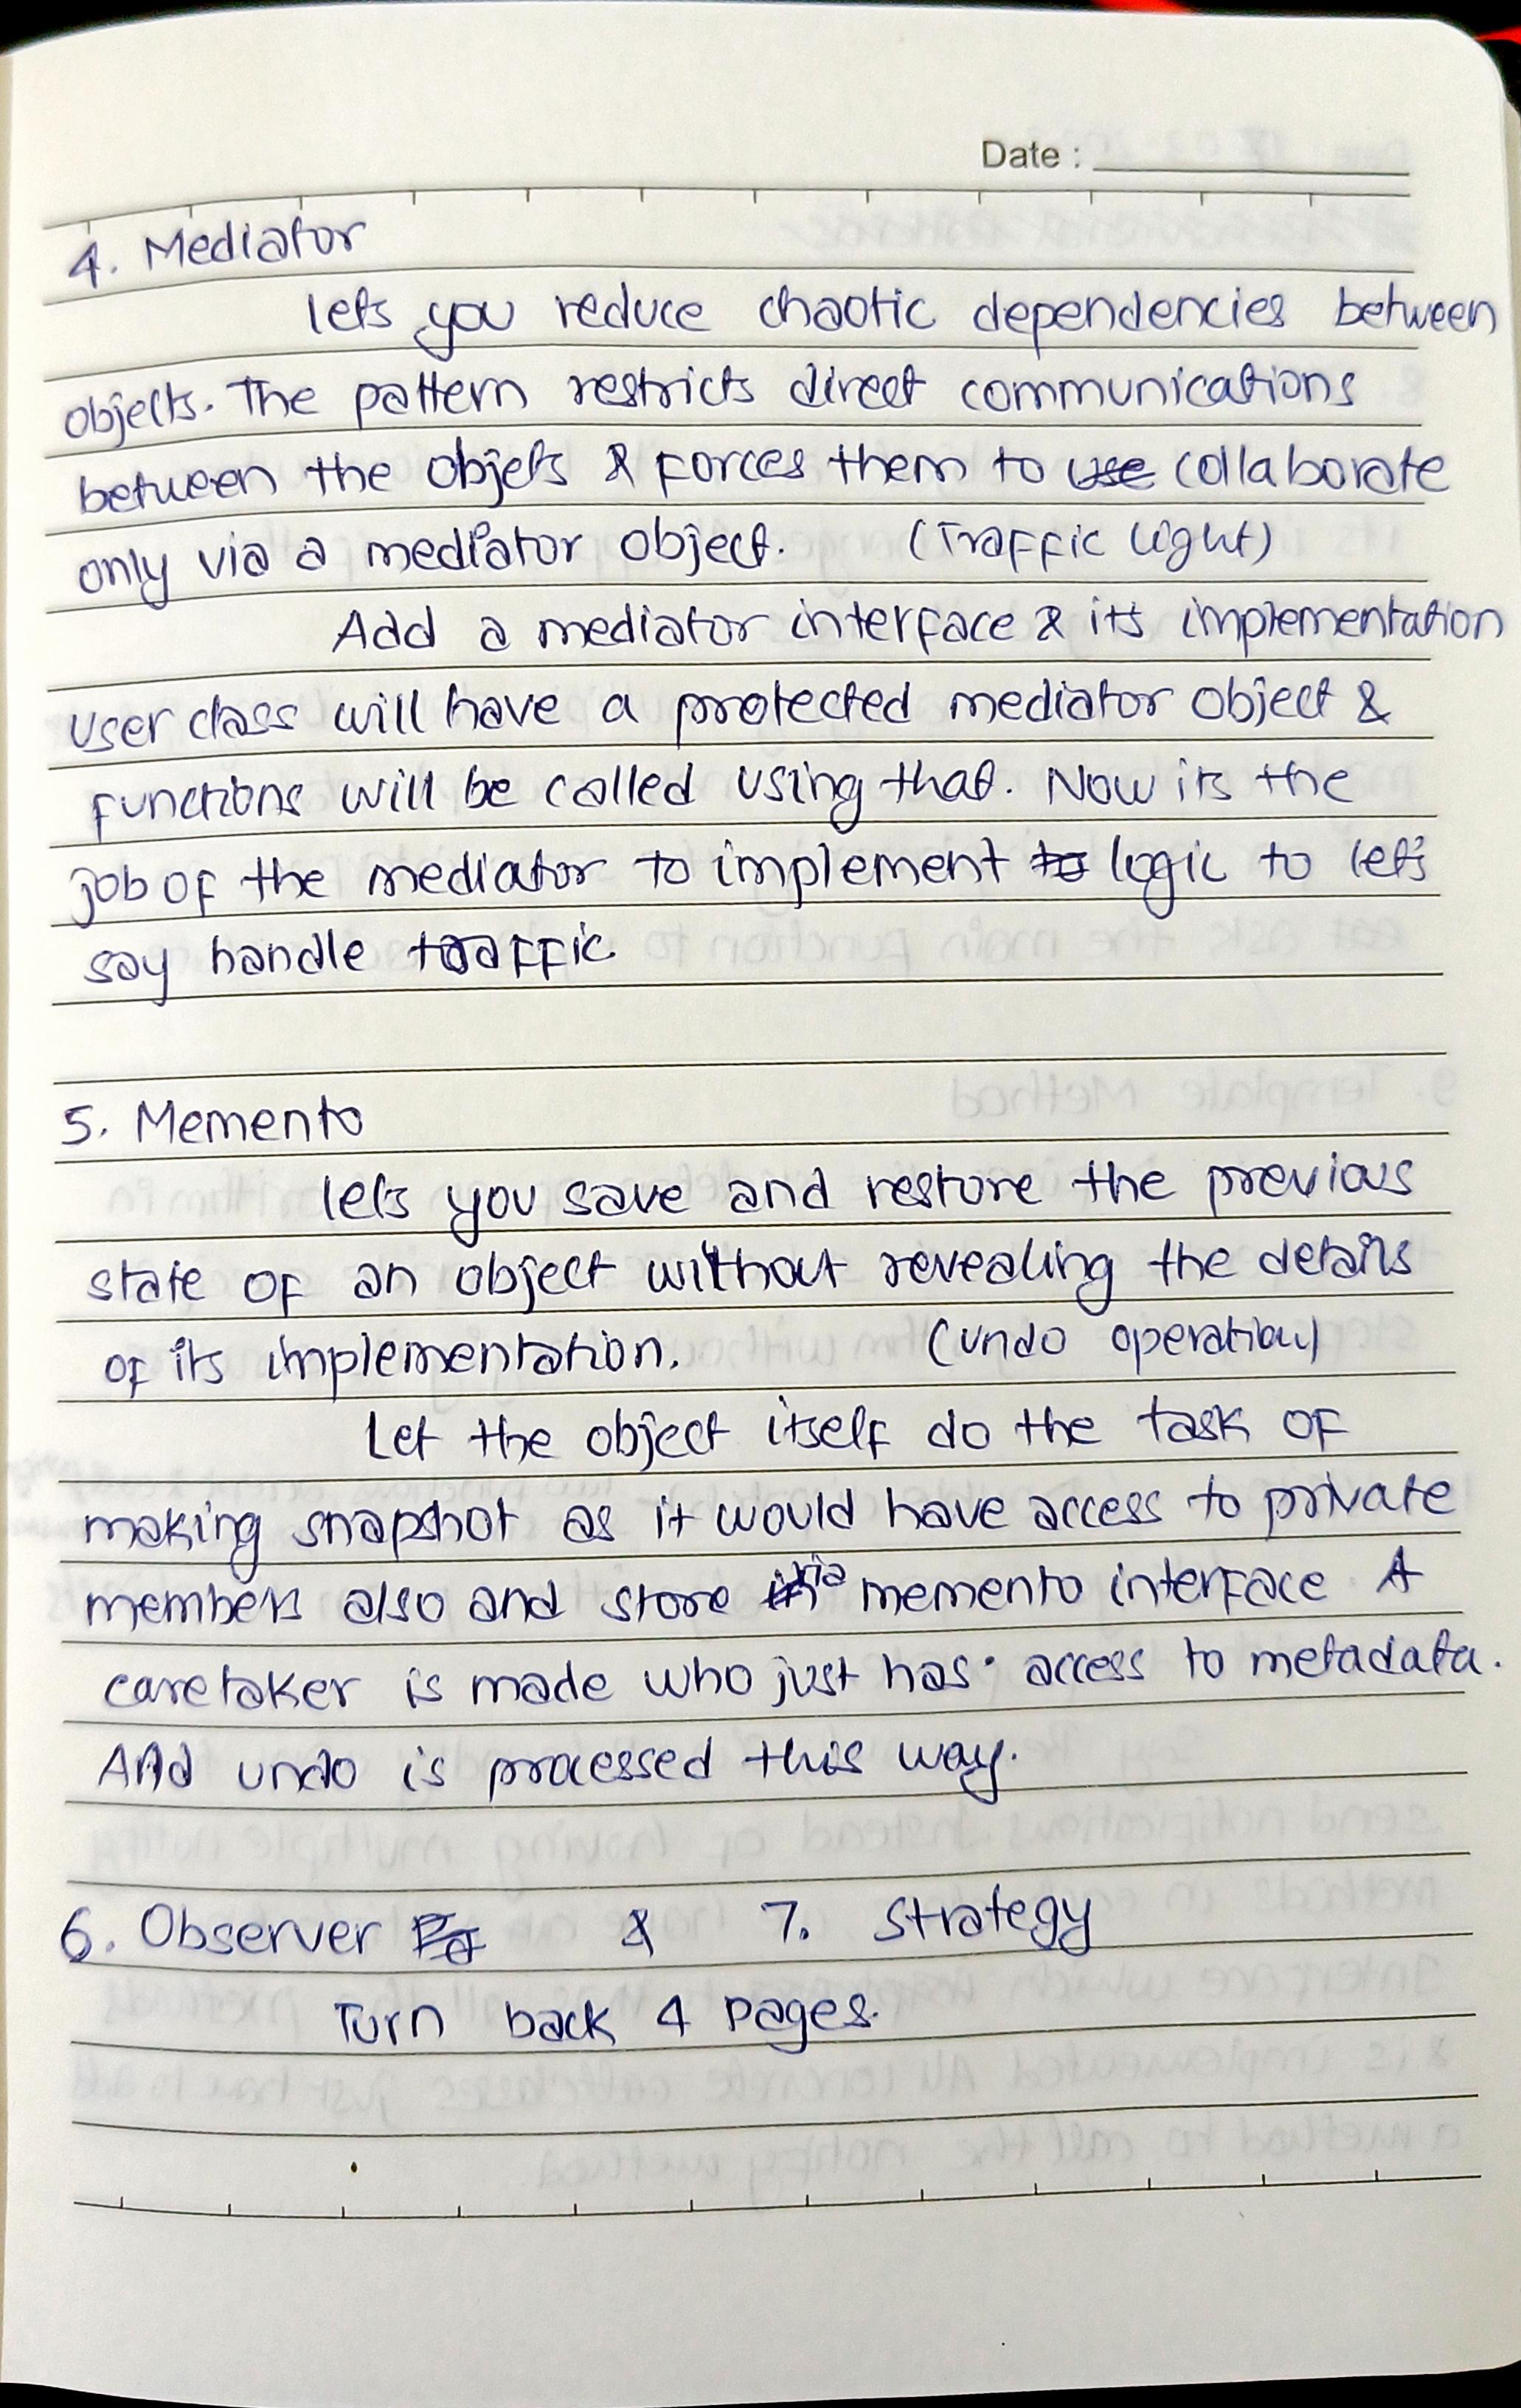 Date :
4. Mediator
lets you reduce chaotic dependencies between
objects. The pattern restricts direct communications
between the objets & forces them to use collaborate
only via a mediator object. (Traffic light)
Add a mediator interface & its implementation
user class will have a protected mediator object &
functions will be called using that. Now its the
job of the mediator to implement to logic to let's
say handle traffic
5. Memento
lets you save and restore the previous
state of an object without revealing the details
of its implementation. (undo operation)
Let the object itself do the task of
making snapshot as it would have access to private
members also and store via memento interface. A
caretaker is made who just has access to metadata.
And undo is processed this way.
6. Observer & 7. Strategy
Turn back 4 pages.